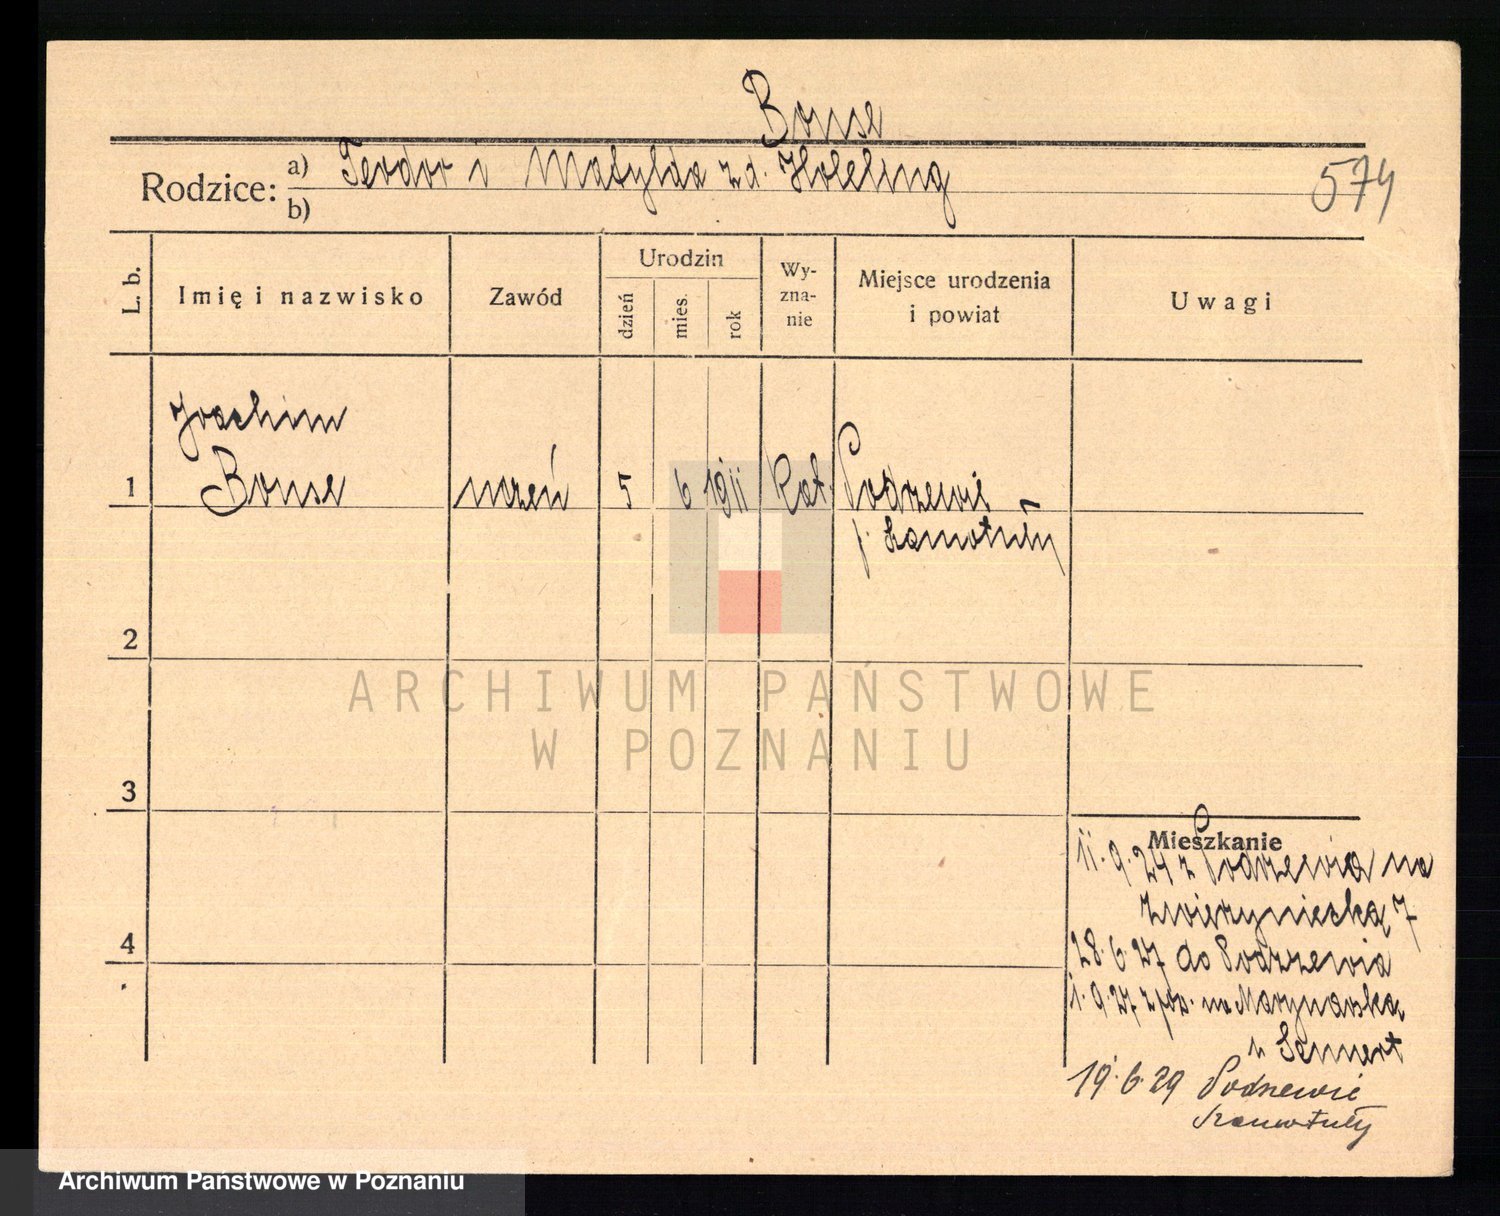 Bonse
Rodzice: a) Teodor i Matylda z d. Hölling
b)
574
L. b.
Imię i nazwisko
Zawód
Urodzin
dzień
mies.
rok
Wy-
zna-
nie
Miejsce urodzenia
i powiat
Uwagi
Joachim
1 Bonse uczeń 5 6 1911 kat. Podrzewie
p. Szamotuły
2
3
4
Mieszkanie
11.9.24 z Podrzewia na
Zwierzyniecką 7
28.6.27 do Podrzewia
1.9.27 z na Marynarska
u
19.6.29 Podrzewie
Szamotuły
ARCHIWUM PAŃSTWOWE
W POZNANIU
Archiwum Państwowe w Poznaniu